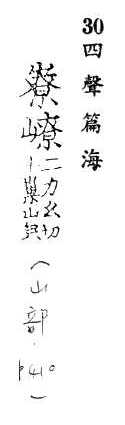 30四聲篇海
嶚嶛二力幺切
巢山
（山部．）